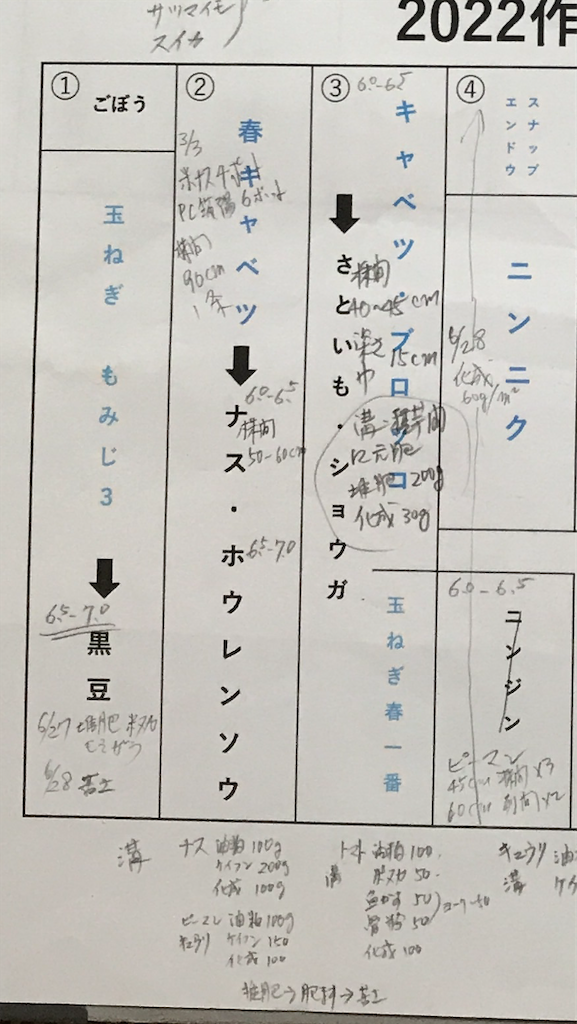 サツマイモ
スイカ
2022作
①
ごぼう
玉ねぎ もみじ3
6.5-7.0
黒豆
6/27 堆肥
6/28 苦土
②
春キャベツ
3/3
株間
90cm
1条
ナス・ホウレンソウ
6.0-6.5
株間
50-60cm
6.5-7.0
③
6.0-6.5
キャベツ・ブロッコ
さといも・ショウガ
株間
40~45cm
深さ
15cm
溝・株間
に元肥
堆肥 200g
化成 30g
玉ねぎ春一番
④
スナップ
エンドウ
ニンニク
6/28
化成
60g/m²
6.0-6.5
ニンジン
ピーマン
45cm 株間×3
60cm 列間×2
溝
ナス 油粕100g
ケイフン 200g
化成 100g
ピーマン 油粕100g
キュウリ ケイフン 150
化成 100
トマト 油粕100.
溝 米ヌカ 50.
魚かす 50
骨粉 50
化成 100
キュウリ 油
溝 ケイ
堆肥→肥料→苦土